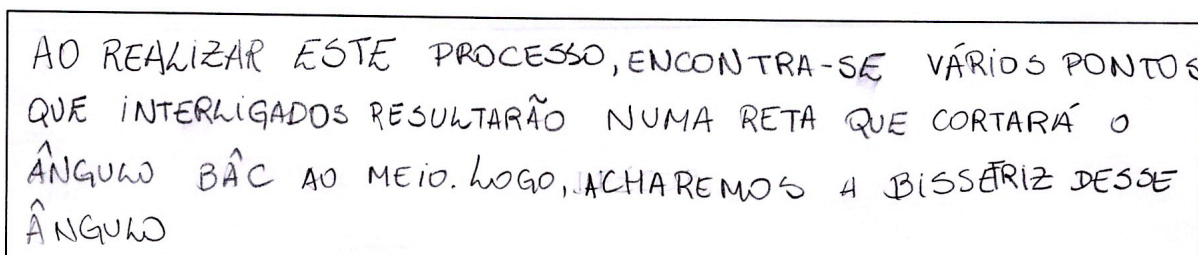 AO REALIZAR ESTE PROCESSO, ENCONTRA-SE VÁRIOS PONTOS
QUE INTERLIGADOS RESULTARÃO NUMA RETA QUE CORTARÁ O
ÂNGULO BÂC AO MEIO. LOGO, ACHAREMOS A BISSETRIZ DESSE
ÂNGULO